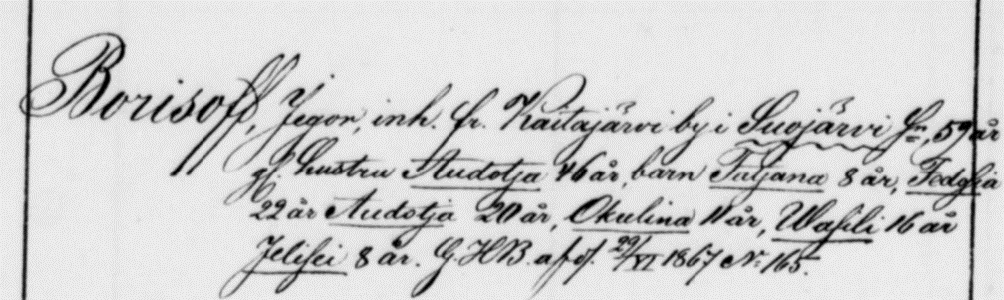 Borisoff, Jegor, inh. fr. Kaitajärvi by i Suojärvi sn, 59 år
gf. hustru Audotja 46 år, barn Tatjana 8 år, Fedosia
22 år Audotja 20 år, Okulina 11 år, Wasili 16 år
Jelisei 8 år. G.H.B. af d. 29/VI 1867 No 165.